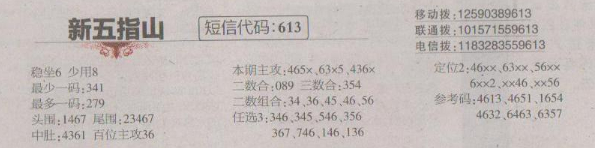 新五指山
短信代码:613
移动拨:12590389613
联通拨:101571559613
电信拨:1183283559613
稳坐6 少用8
最少一码:341
最多一码:279
头围:1467 尾围:23467
中肚:4361 百位主攻36
本期主攻:465x、63x5、436x
二数合:089 三数合:354
二数组合:34、36、45、46、56
任选3:346、345、546、356
367、746、146、136
定位2:46xx、63xx、56xx
6xx2、xx46、xx56
参考码:4613、4651、1654
4632、6463、6357